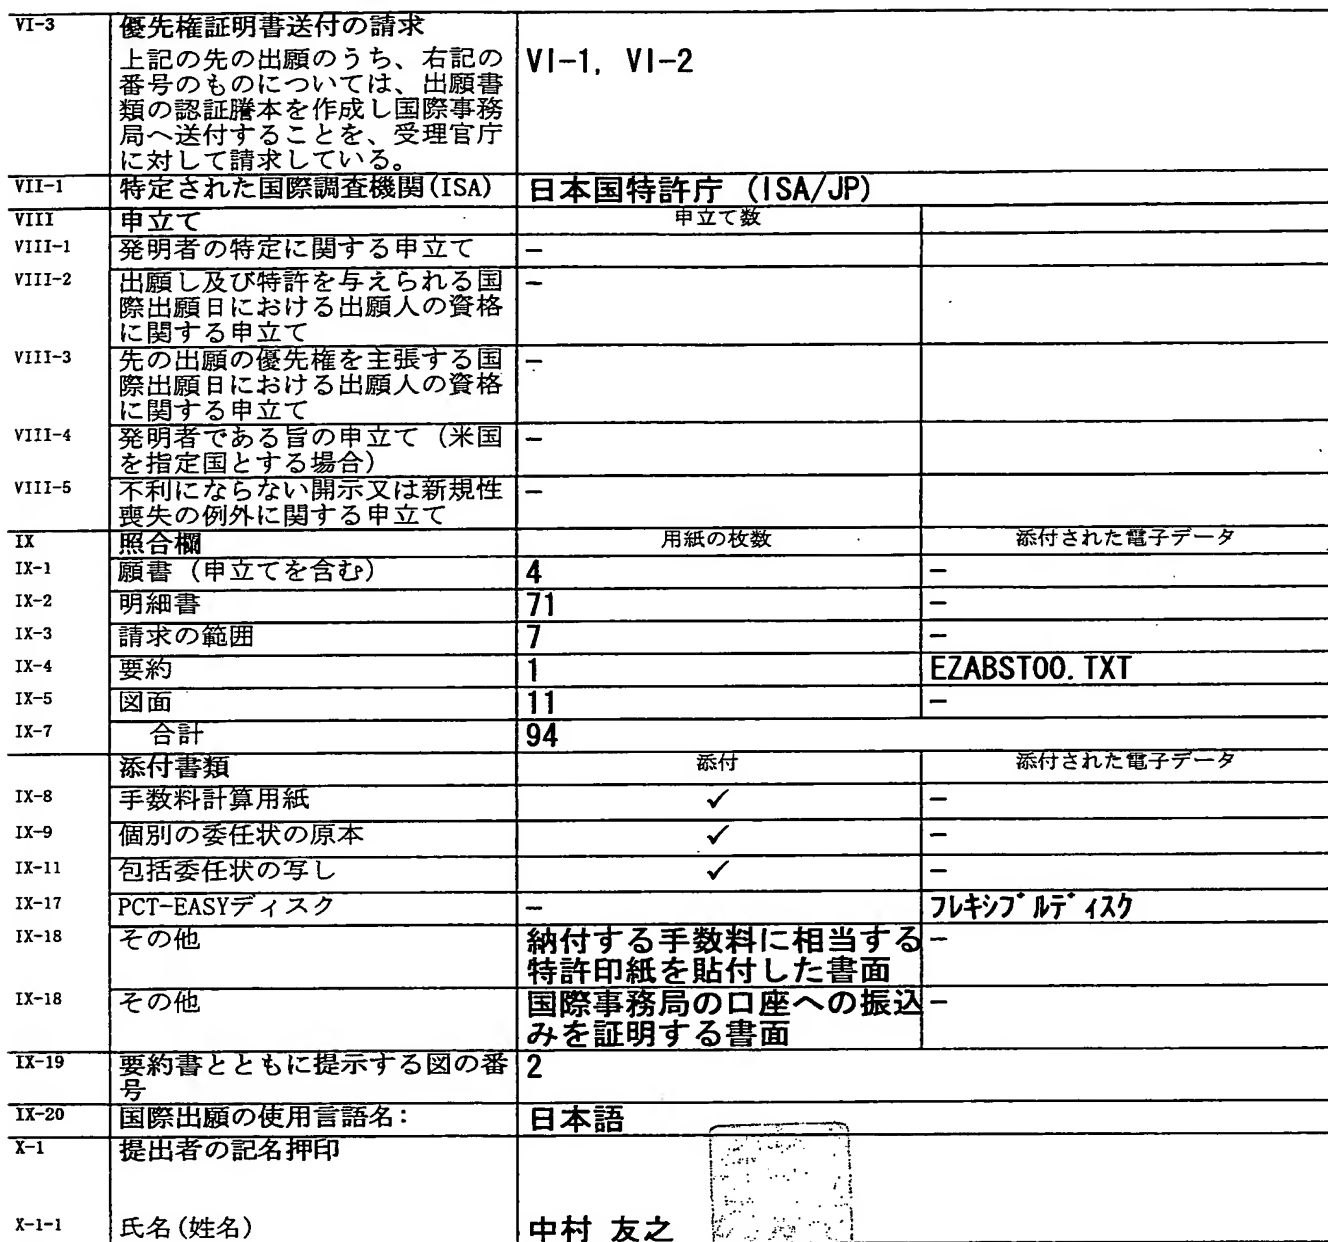 VI-3 優先権証明書送付の請求
上記の先の出願のうち、右記の VI-1, VI-2
番号のものについては、出願書
類の認証謄本を作成し国際事務
局へ送付することを、受理官庁
に対して請求している。
VII-1 特定された国際調査機関(ISA) 日本国特許庁 (ISA/JP)
VIII 申立て 申立て数
VIII-1 発明者の特定に関する申立て -
VIII-2 出願し及び特許を与えられる国 -
際出願日における出願人の資格
に関する申立て
VIII-3 先の出願の優先権を主張する国 -
際出願日における出願人の資格
に関する申立て
VIII-4 発明者である旨の申立て (米国 -
を指定国とする場合)
VIII-5 不利にならない開示又は新規性 -
喪失の例外に関する申立て
IX 照合欄 用紙の枚数 添付された電子データ
IX-1 願書 (申立てを含む) 4 -
IX-2 明細書 71 -
IX-3 請求の範囲 7 -
IX-4 要約 1 EZABST00.TXT
IX-5 図面 11 -
IX-7 合計 94
添付書類 添付 添付された電子データ
IX-8 手数料計算用紙 ✓ -
IX-9 個別の委任状の原本 ✓ -
IX-11 包括委任状の写し ✓ -
IX-17 PCT-EASYディスク - フレキシブルディスク
IX-18 その他 納付する手数料に相当する -
特許印紙を貼付した書面
IX-18 その他 国際事務局の口座への振込 -
みを証明する書面
IX-19 要約書とともに提示する図の番 2
号
IX-20 国際出願の使用言語名: 日本語
X-1 提出者の記名押印
X-1-1 氏名(姓名) 中村 友之